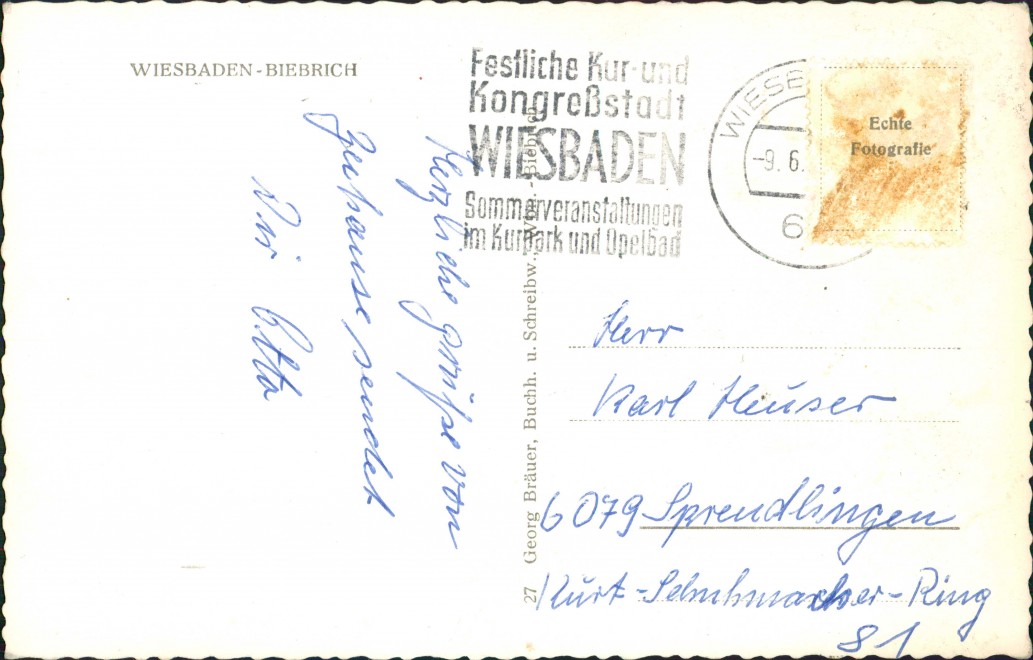 WIESBADEN-BIEBRICH
Festliche Kur- und
Kongreßstadt
WIESBADEN
Sommerveranstaltungen
im Kurpark und Opelbad
WIESB
-9. 6.
6
Echte
Fotografie
Herzliche grüße von
Zuhause sendet
Dir Otto
27 Georg Bräuer, Buchh. u. Schreibw., Wbn.-Biebrich
Herr
Karl Heuser
6079 Sprendlingen
Kurt-Schuhmacher-Ring
81